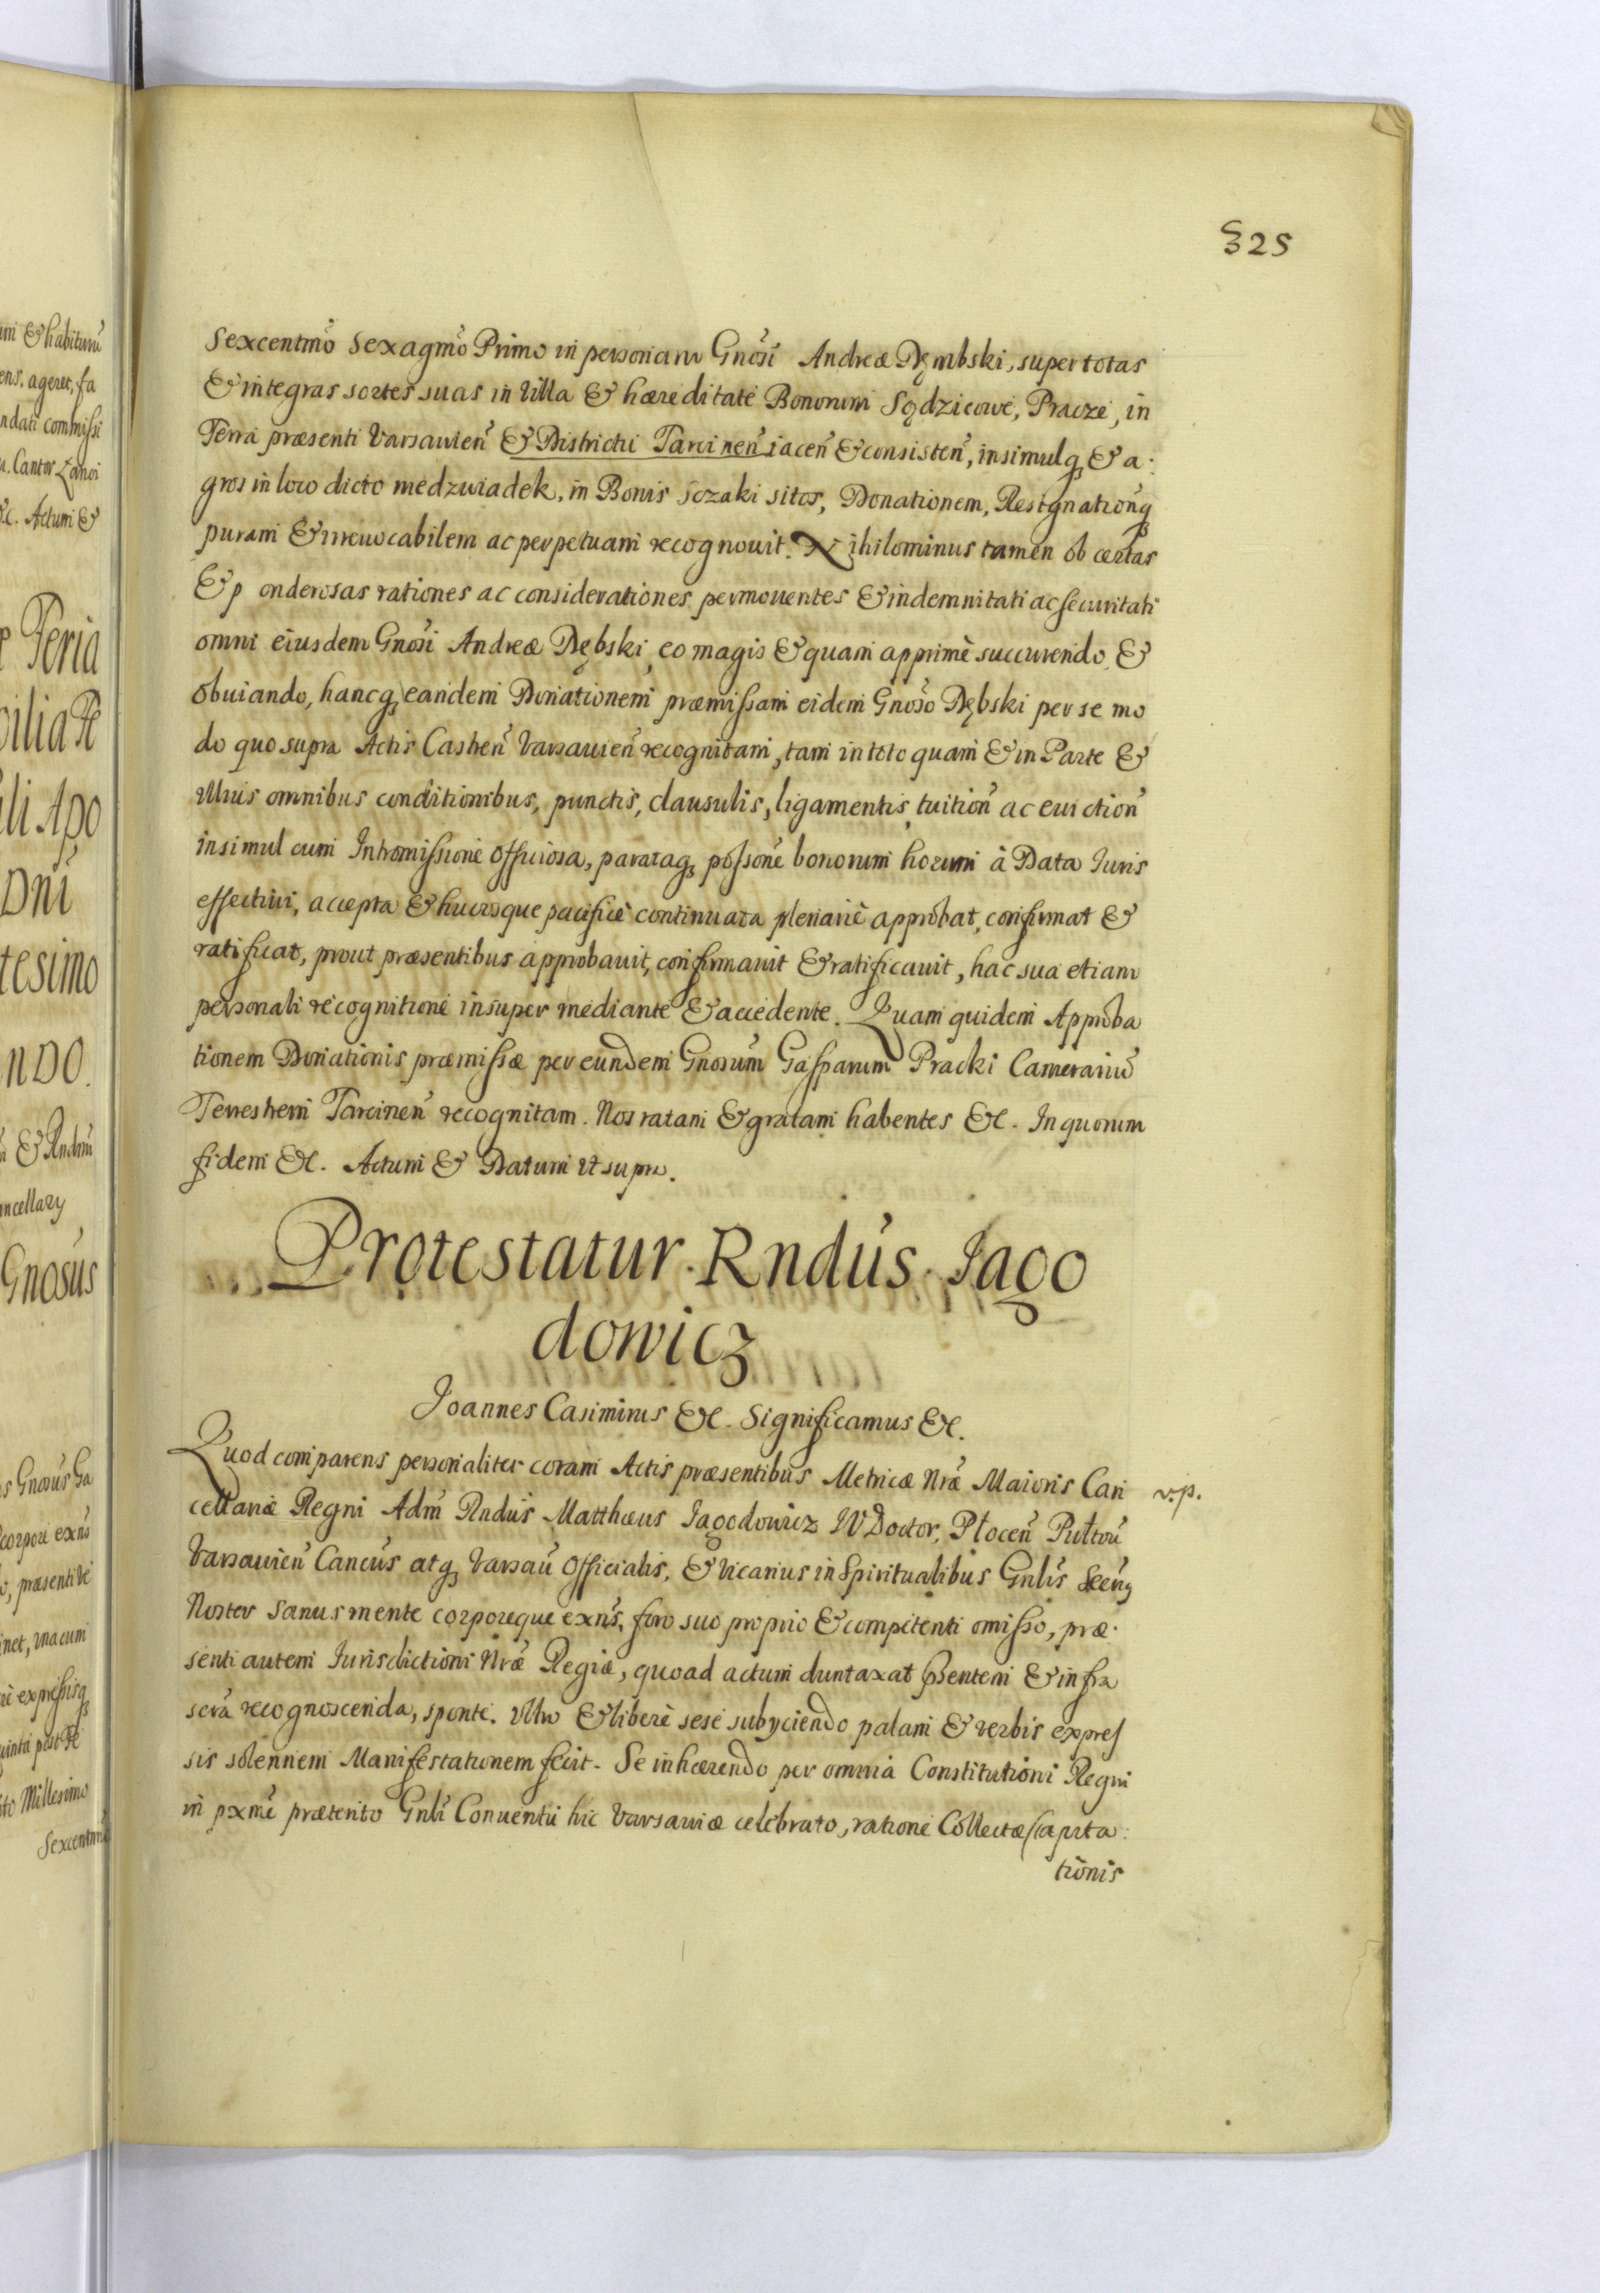 325
Sexcentmo Sexagmo Primo in personam Gnosi Andreæ Dęmbski, super totas
& integras sortes suas in Villa & hæreditate Bonorum Sędzicowe, Pracze, in
Terra præsenti Varsavien & Districtu Tarcinen iacen & consisten, insimulq & a:
gros in loco dicto medzwiadek, in Bonis Sozaki sitos, Donationem, Resignationq
puram & irreuocabilem ac perpetuam recognouit. Nihilominus tamen ob certas
& ponderosas rationes ac considerationes permouentes & indemnitati ac securitati
omni eiusdem Gnosi Andreæ Dębski, eo magis & quam apprimè succurendo, &
obuiando, hancq eandem Donationem præmissam eidem Gnoso Dębski per se mo
do quo supra Actis Castren Varsauien recognitam, tam in toto quam & in Parte &
Illius omnibus conditionibus, punctis, clausulis, ligamentis, tuition ac euiction
insimul cum Intromissione officiosa, parataq possone bonorum horum à Data Iuris
effectiui, accepta & hucusque pacifice continuata plenarie approbat, confirmat &
ratificat, prout præsentibus approbauit, confirmauit & ratificauit, hac sua etiam
personali recognitione insuper mediante & accedente. Quam quidem Approba
tionem Donationis præmissæ per eundem Gnosum Gasparum Pracki Camerariu
Terrestrem Tarcinen recognitam. Nos ratam & gratam habentes &c. In quorum
fidem &c. Actum & Datum Ut supra.
Protestatur Rndus Iago
dowicz
Joannes Casimirus &c. Significamus &c.
Quod comparens personaliter coram Actis præsentibus Metricæ Nræ Maioris Can
v.p.
cellariæ Regni Adm Rndus Matthæus Iagodowicz IV Doctor, Płocen Pułtou
Varsauien Cancus atq Varsau Officialis, & Vicarius in Spiritualibus Gnlis Secrus
Noster Sanus mente corporeque exns, foro suo proprio & competenti omisso, præ:
senti autem Iurisdictioni Nræ Regiæ, quoad actum duntaxat pñtem & infra
scra recognoscenda, sponte. Ultro & liberè sese subyciendo palam & verbis expres
sis solennem Manifestationem fecit. Se inhærendo per omnia Constitutioni Regni
in pxme præterito Gnli Conuentu hic Varsauiæ celebrato, ratione Collectæ Capita:
tionis